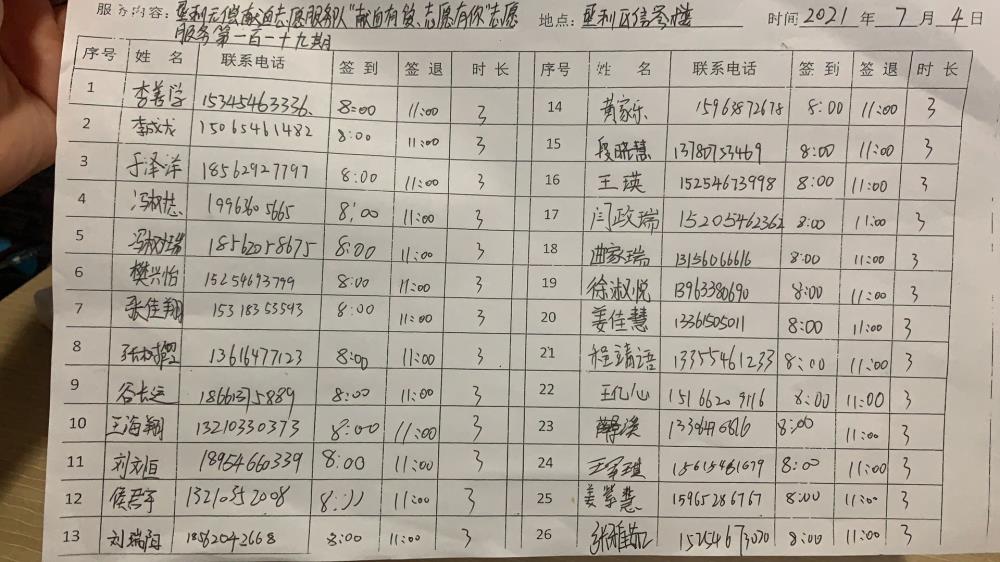 服务内容：垦利无偿献血志愿服务队"献血有爱、志愿有你"志愿 地点：垦利区信誉楼 时间2021年7月4日
服务第一百一十九期
序号 姓名 联系电话 签到 签退 时长 序号 姓名 联系电话 签到 签退 时长
1 李善学 15345463336 8:00 11:00 3 14 黄家乐 15963872678 8:00 11:00 3
2 李成龙 15065461482 8:00 11:00 3 15 段晓慧 13780753469 8:00 11:00 3
3 于泽洋 18562927797 8:00 11:00 3 16 王瑛 15254673998 8:00 11:00 3
4 冯树志 19963605665 8:00 11:00 3 17 闫政瑞 15205462362 8:00 11:00 3
5 冯树瑞 18562058675 8:00 11:00 3 18 曲家瑞 13156066616 8:00 11:00 3
6 樊兴怡 15254693799 8:00 11:00 3 19 徐淑悦 13963380690 8:00 11:00 3
7 张佳翔 15318355593 8:00 11:00 3 20 姜佳慧 13361505011 8:00 11:00 3
8 张 13616477123 8:00 11:00 3 21 程靖语 13355461233 8:00 11:00 3
9 谷长运 18661375889 8:00 11:00 3 22 王亿心 15166209116 8:00 11:00 3
10 王海翔 13210330373 8:00 11:00 3 23 8:00 11:00 3
11 刘文恒 18954660339 8:00 11:00 3 24 王 15615461679 8:00 11:00 3
12 侯君宇 13210352008 8:00 11:00 3 25 姜紫慧 15965286767 8:00 11:00 3
13 刘瑞阳 18562042668 8:00 11:00 3 26 张雅茹 15254673070 8:00 11:00 3